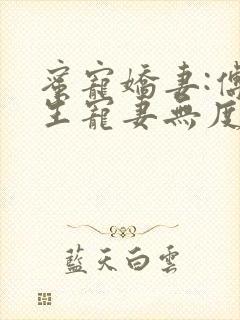 蜜寵嬌妻:傅
生寵妻無度
藍天白雲